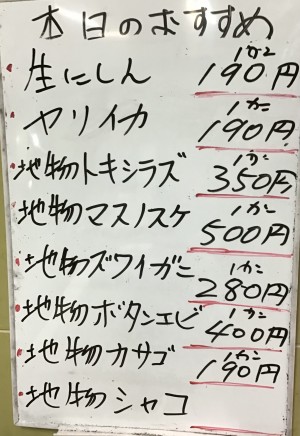 本日のおすすめ
生にしん 1カン 190円
ヤリイカ 1カン 190円
地物トキシラズ 1カン 350円
地物マスノスケ 1カン 500円
地物ズワイガニ 1カン 280円
地物ボタンエビ 1カン 400円
地物カサゴ 1カン 190円
地物シャコ